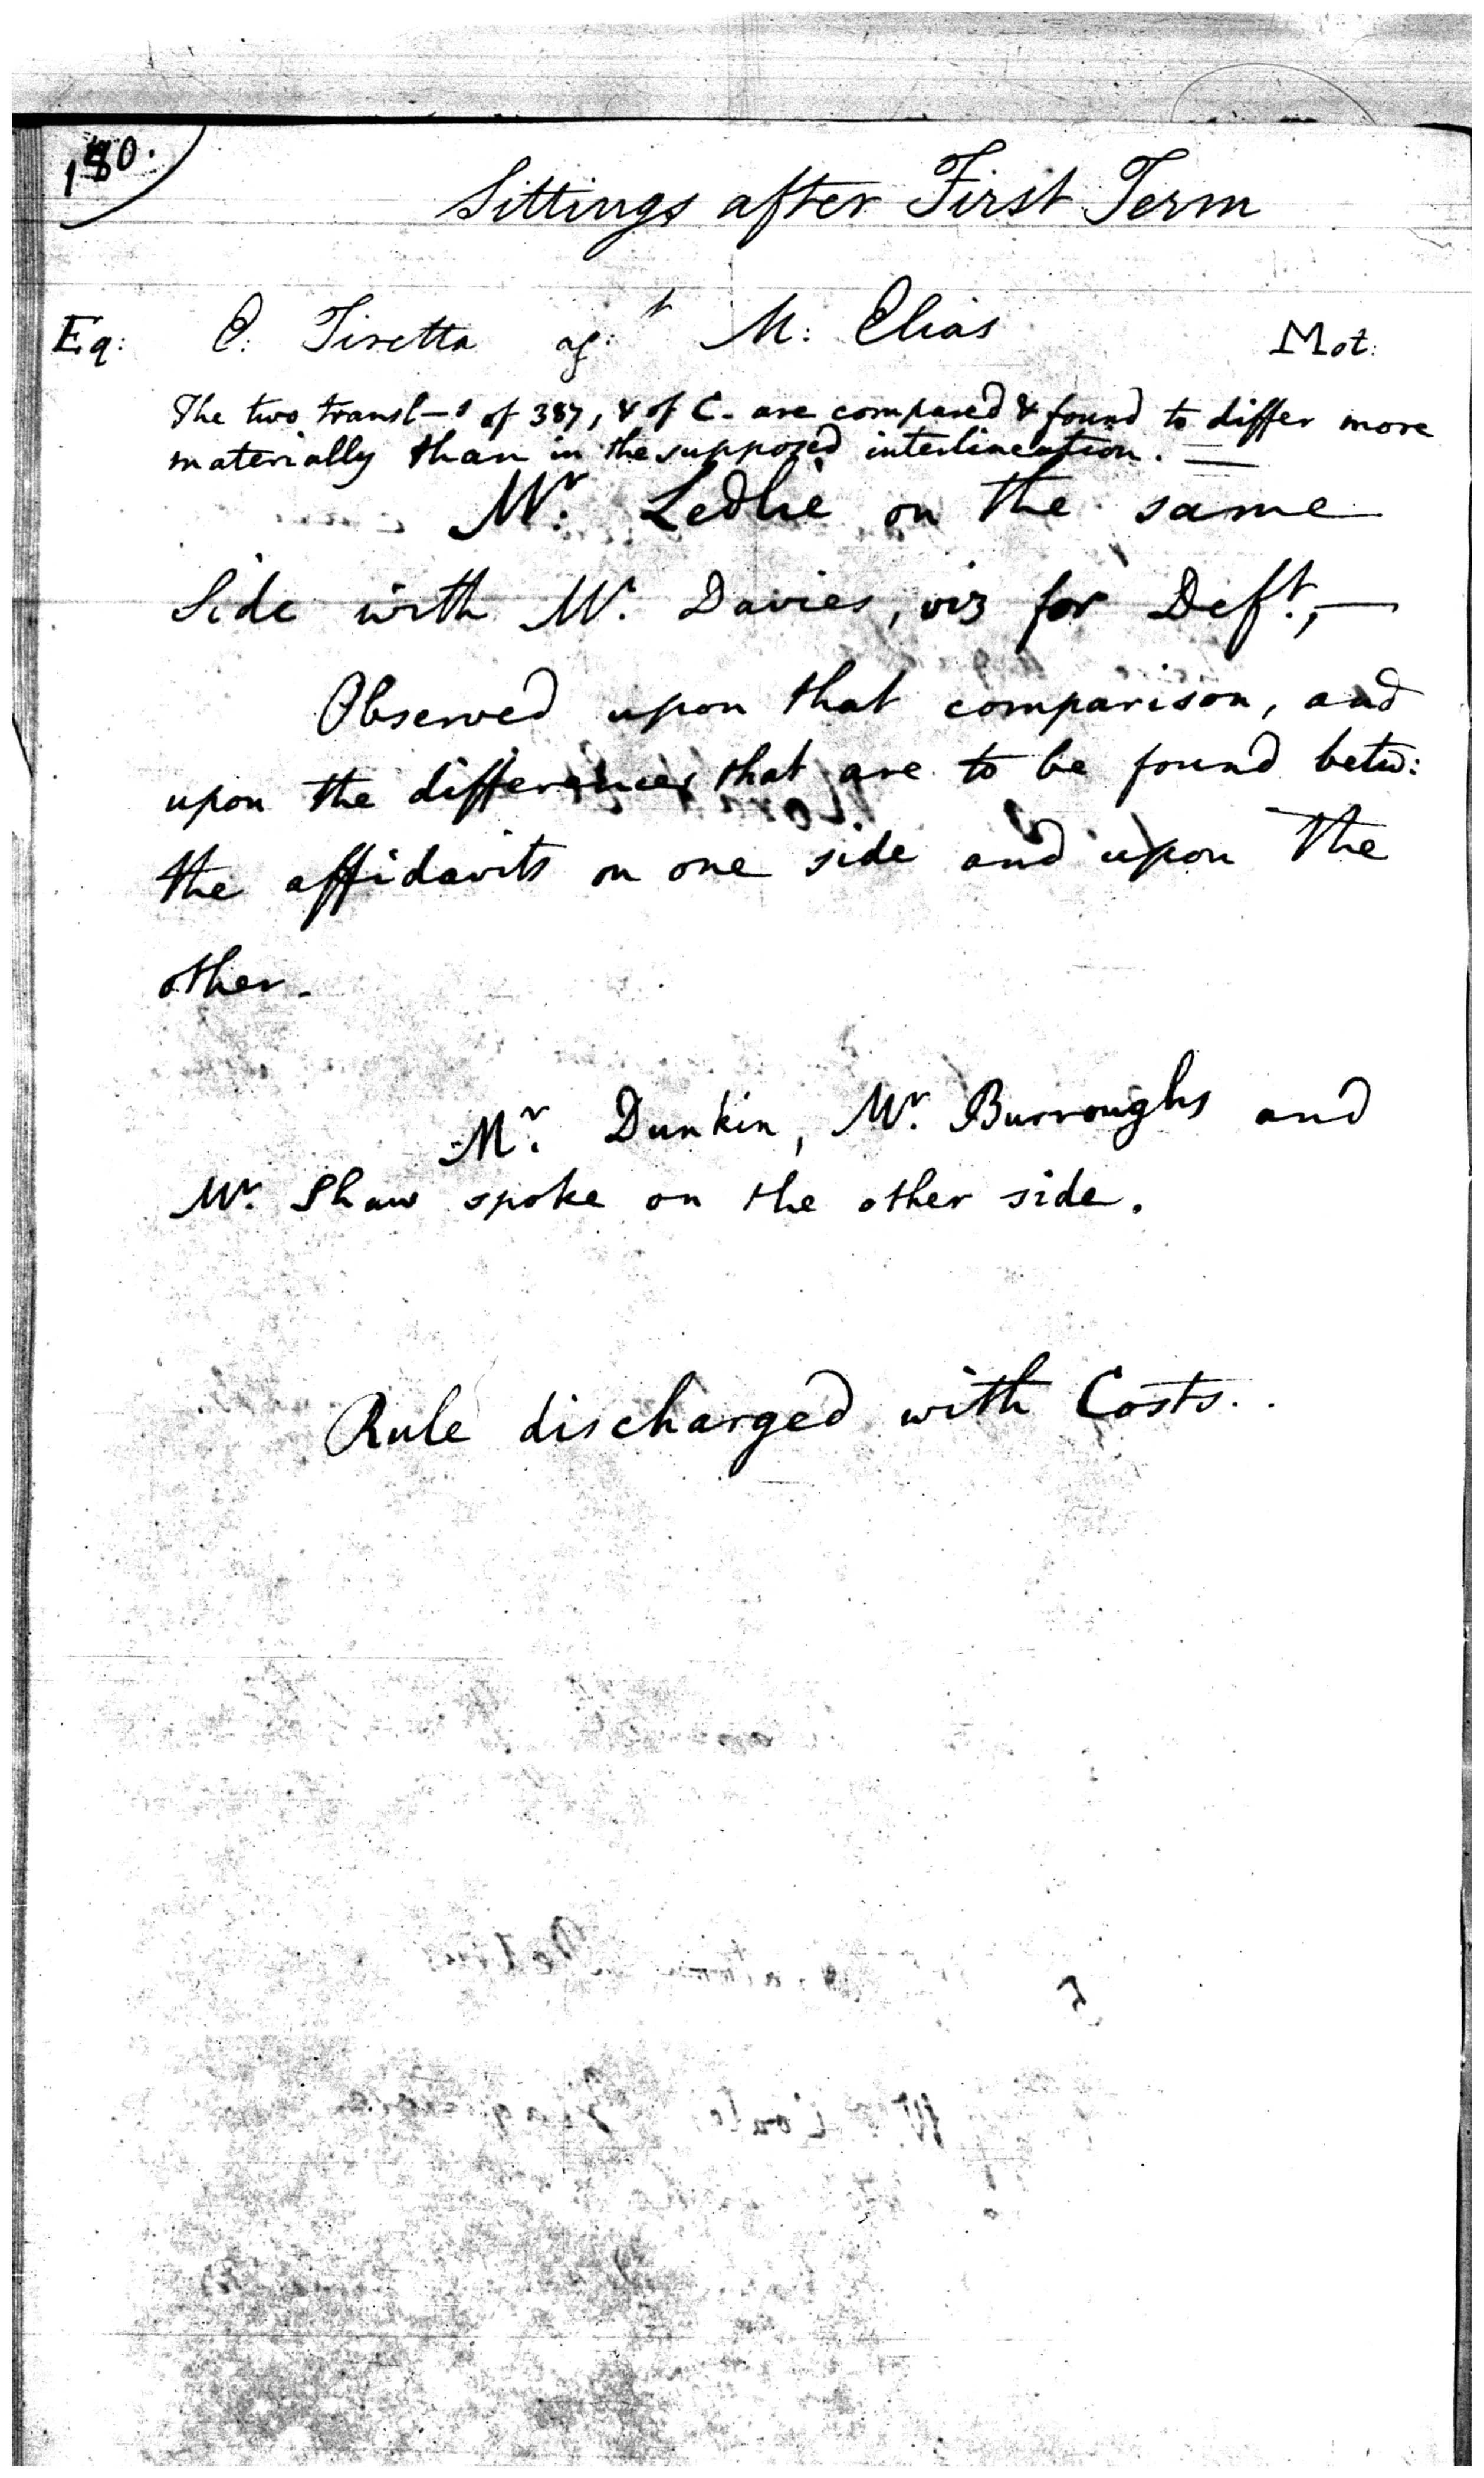 180.
Sittings after First Term
Eq: C. Tiretta ag:t M: Elias Mot:
The two transl-s of 387, & of C. are compared & found to differ more
materially than in the supposed interlineation. —
Mr. Ledlie on the same
Side with Mr. Davies, viz for Deft., —
Observed upon that comparison, and
upon the differences that are to be found betw:
the affidavits on one side and upon the
other.
Mr. Dunkin, Mr. Burroughs and
Mr. Shaw spoke on the other side.
Rule discharged with Costs..